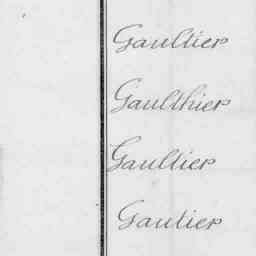 Gaultier
Gaulthier
Gaultier
Gautier